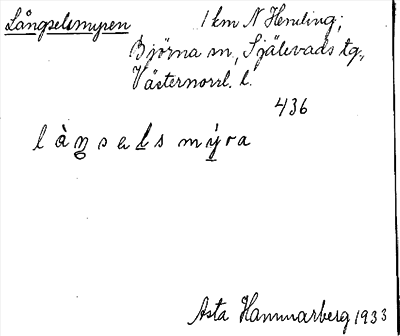 Långselsmyren 1 km N Hemling;
Björna sn, Själevads tg.,
Västernorrl. l.
436
l à ŋ s ɐ l s m y r a
Asta Hammarberg 1933